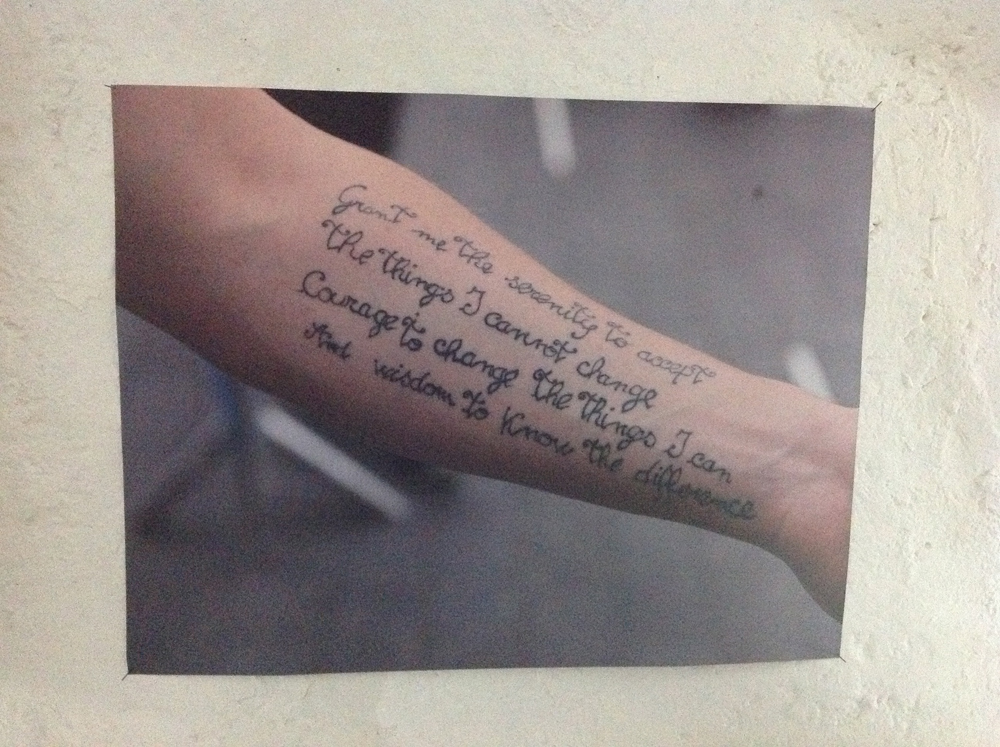 Grant me the serenity to accept
the things I cannot change
Courage to change the things I can
And wisdom to know the difference